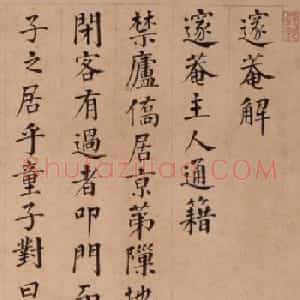 邃菴解
邃菴主人通籍
禁廬僑居京第隟地
閉客有過者叩門而
子之居乎童子對曰